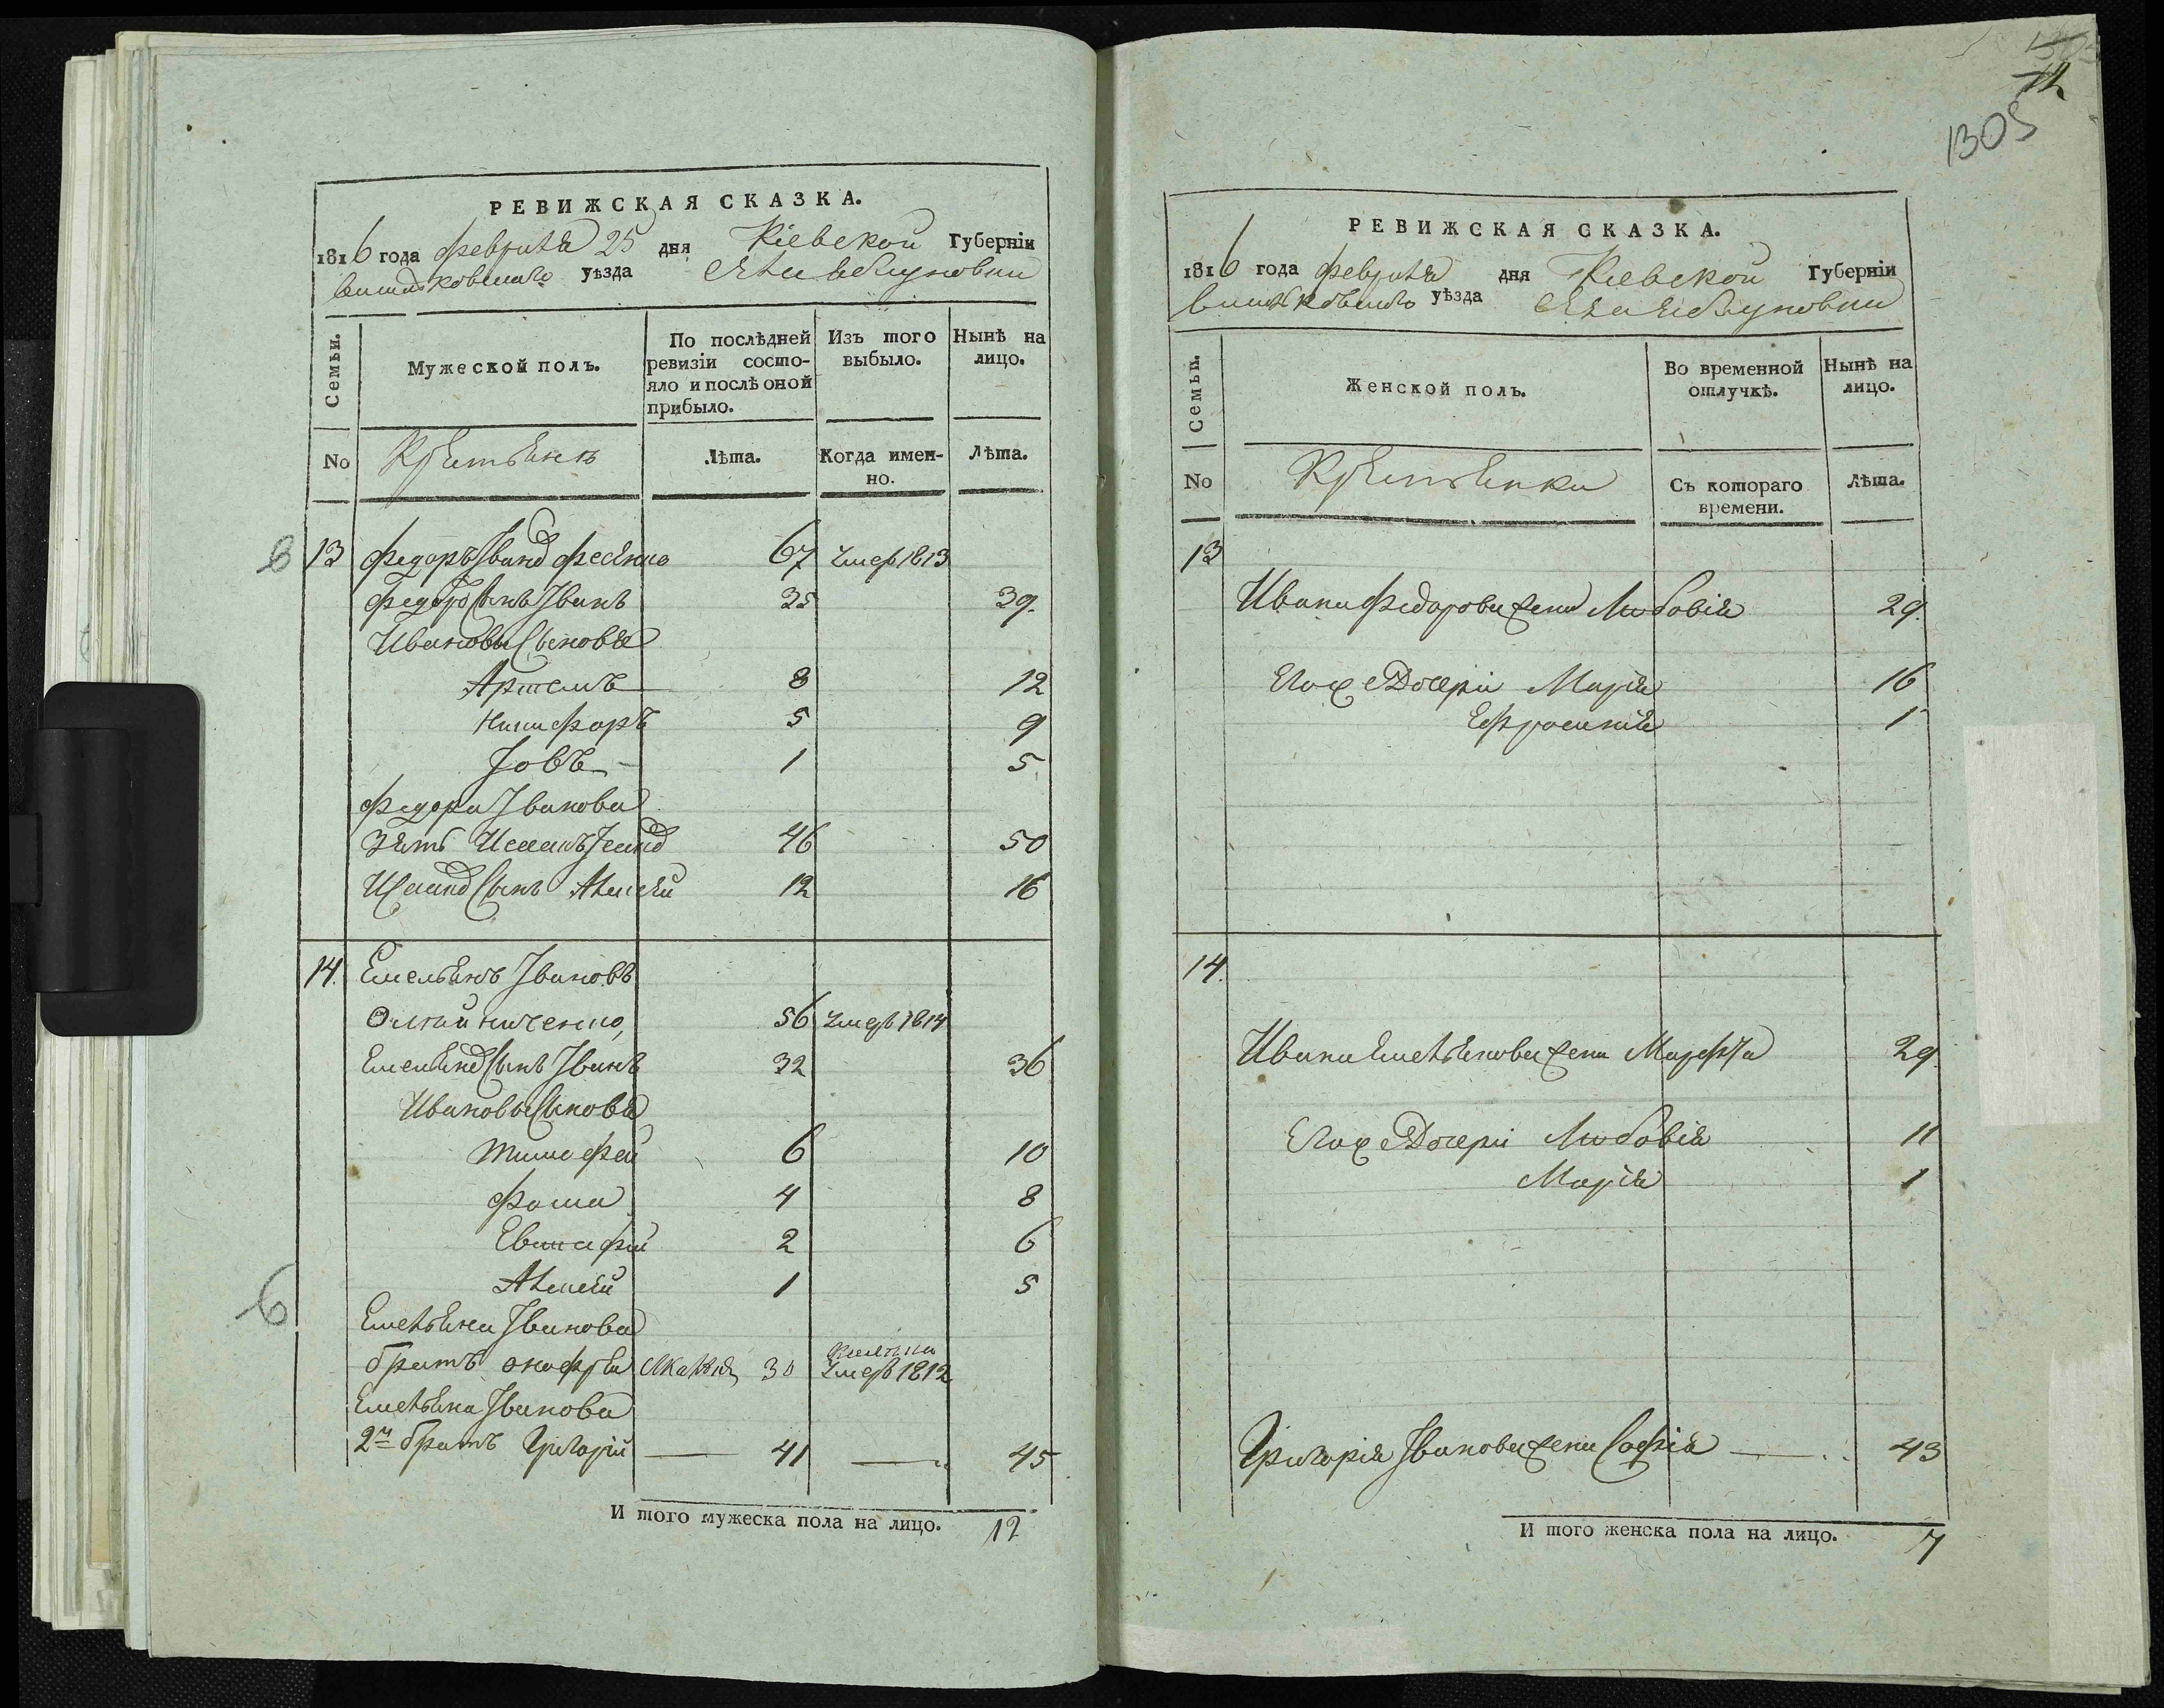 РЕВИЖСКАЯ СКАЗКА.
1816 года февраля 25 дня Кіевской Губерніи
уѣзда
Семьи.
Мужеской полъ.
По послѣдней ревизіи состояло и послѣ оной прибыло.
Изъ того выбыло.
Нынѣ на лицо.
No
Лѣта.
Когда именно.
Лѣта.
13 Федоръ Иванъ 67 умер 1813
сынъ Іванъ 35 39
Ивановы Сыновя
Артемъ 8 12
Никифоръ 5 9
Іовъ 1 5
Федора Іванова
зять 46 50
сынъ Алексѣй 12 16
14. Емельянъ Івановъ
56 умеръ 1814
сынъ Іванъ 32 36
Ивановы Сыновя
Тимофей 6 10
Фома 4 8
Евстафій 2 6
Алексѣй 1 5
Емельяна Іванова
братъ Онофрей 30 умеръ 1812
Емельяна Іванова
2й братъ Григорій 41 45
И того мужеска пола на лицо. 12
1305
РЕВИЖСКАЯ СКАЗКА.
1816 года февраля дня Кіевской Губерніи
уѣзда
Семьи.
Женской полъ.
Во временной отлучкѣ.
Нынѣ на лицо.
No
Съ котораго времени.
Лѣта.
13
Ивана Федорова жена Любовія 29.
Его Дочери Марія 16
Ефросинія 1
14.
Ивана Емельянова жена Марфа 29.
Его Дочери Любовія 11
Марія 1
Григорія Іванова жена Софія 43
И того женска пола на лицо. 7